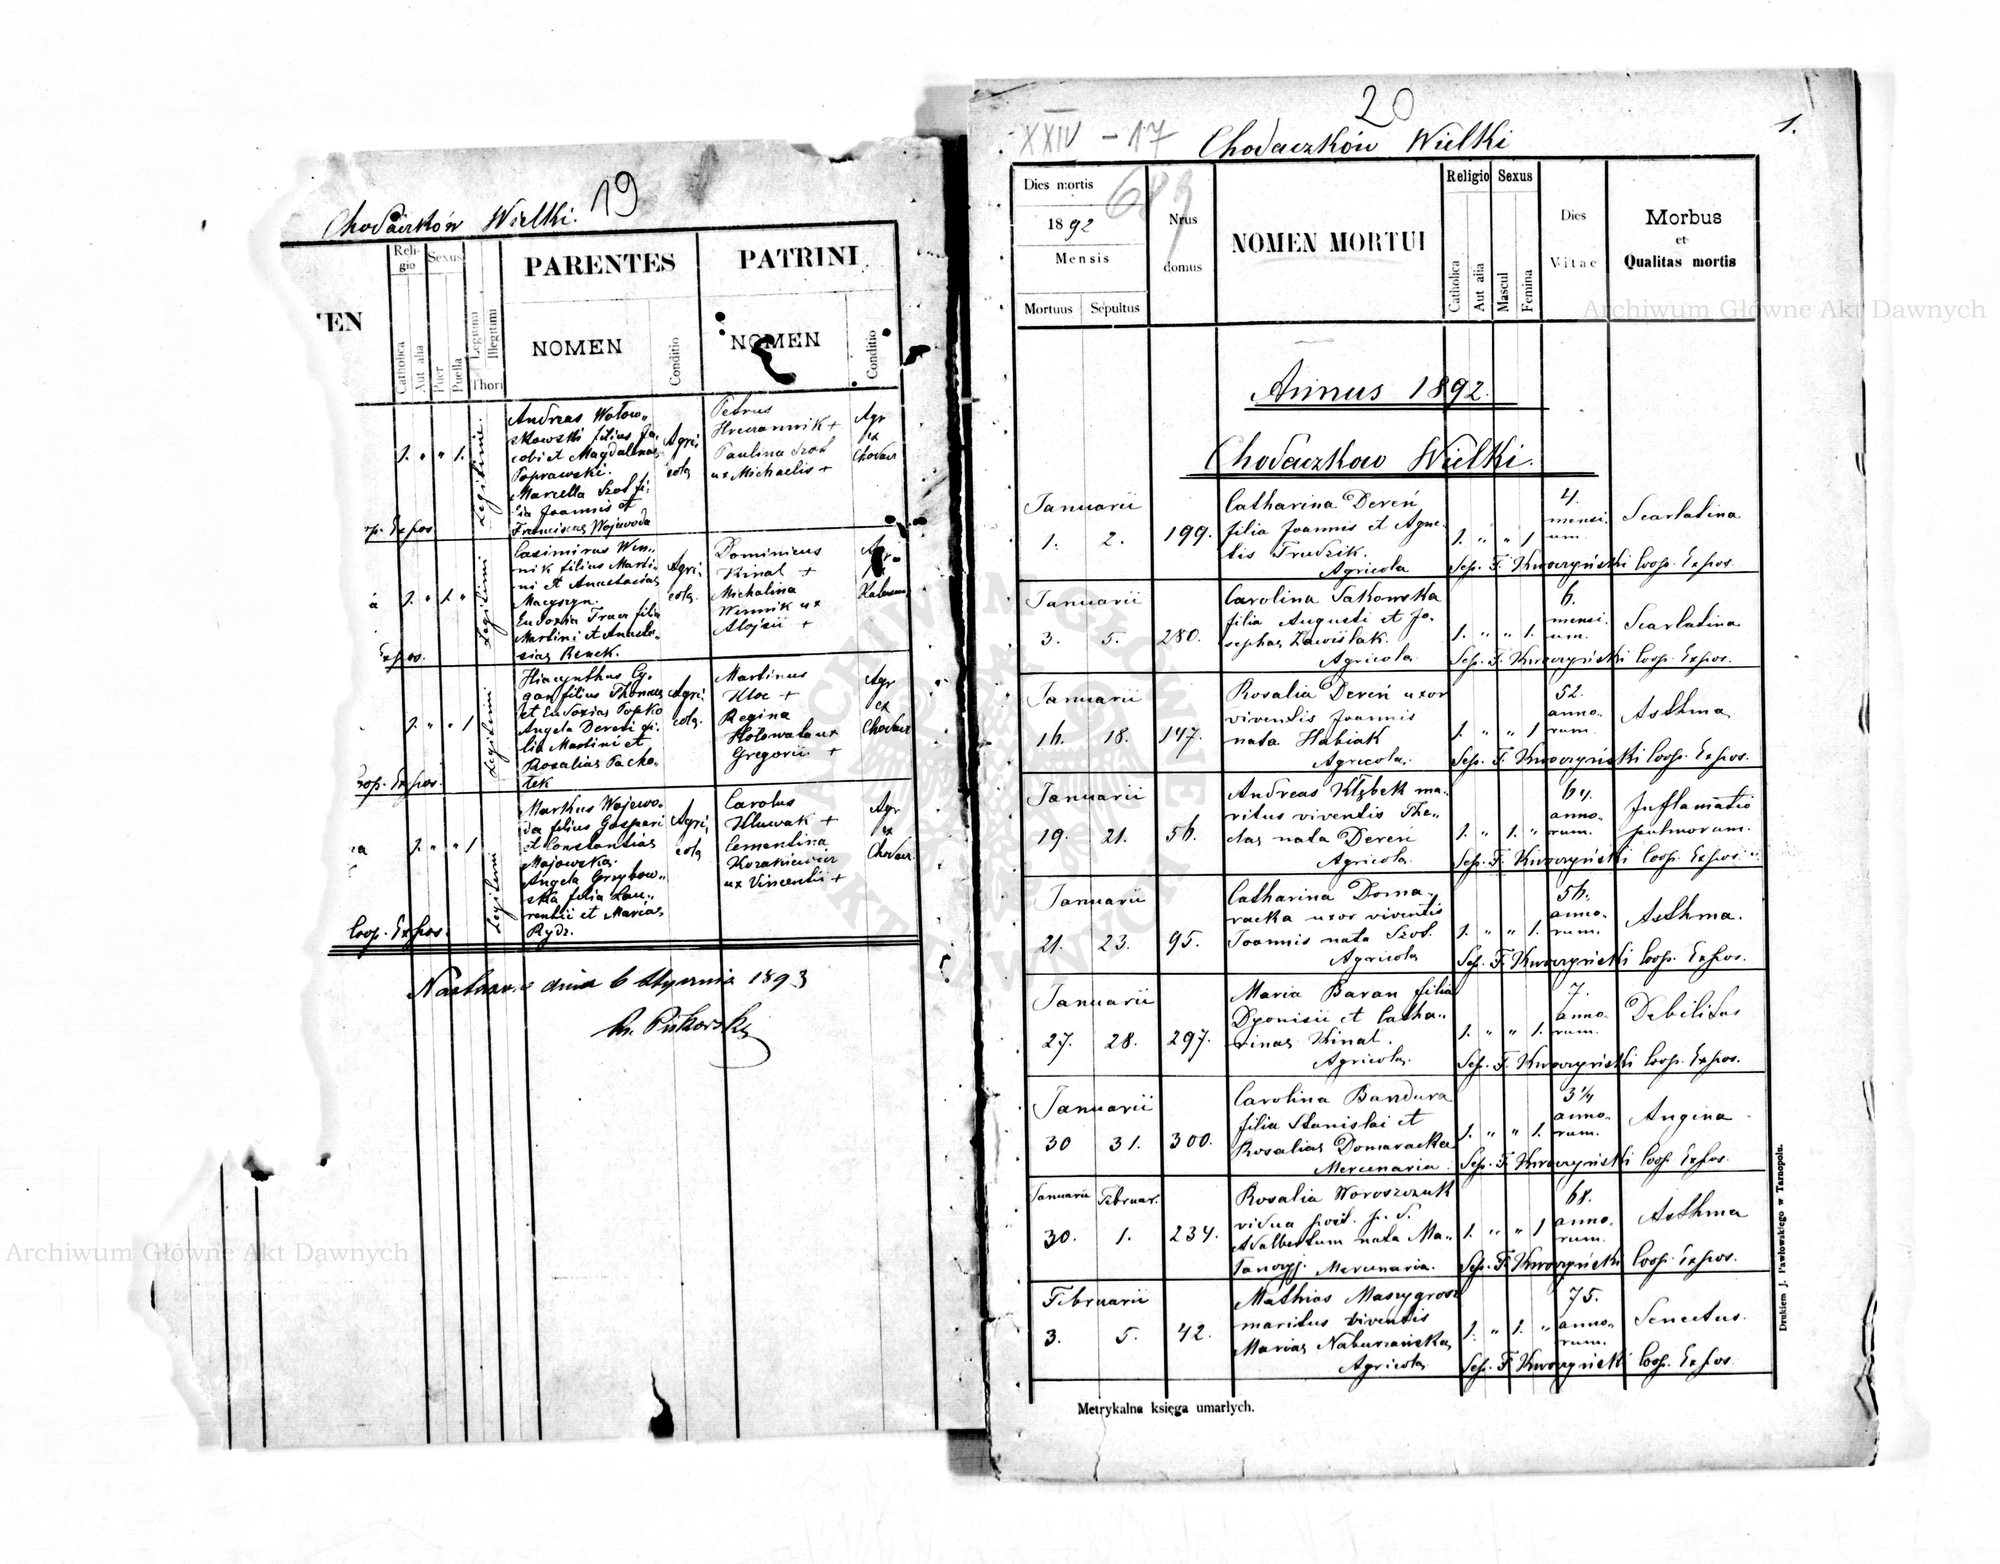 19
Chodaczków Wielki.
TEN
Religio
Sexus
Catholica
Aut alia
Puer
Puella
Legitimi
Illegitimi
Thori
PARENTES
NOMEN
Conditio
PATRINI
NOMEN
Conditio
1. " " 1.
Legitimi
Andreas Wołow-
skowski filius Ja-
cobi et Magdalenae
Poprawski.
Marcella Szot fi-
lia Joannis et
Franciscae Wojewoda
Agri-
cola
Petrus
Hreczannik +
Paulina Szot
ux Michaelis +
Agr
ex
Chodacz
Coop. Expos
1. " 1. "
Legitimi
Casimirus Win-
nik filius Marti-
ni et Anastasiae
Macyszyn.
Eudoxia Tracz filia
Martini et Anasta-
siae Benek.
Agri-
cola
Dominicus
Kinal +
Michalina
Winnik ux
Alojsii +
Expos.
1. " " 1
Legitimi
Hiacynthus Cy-
gan filius Thomae
et Eudoxiae Popko
Angela Dereń fi-
lia Martini et
Rosaliae Pacho-
łek
Agri-
cola
Martinus
Kloc +
Regina
Hołowata ux
Gregorii +
Agr
ex
Chodacz
Coop. Expos.
1. " " 1
Legitimi
Markus Wojewo-
da filius Gaspari
et Constantiae
Majewska.
Angela Grzybow-
ska filia Lau-
rentii et Mariae
Rydz.
Agri-
cola
Carolus
Hluwak +
Clementina
Kozakiewicz
ux Vincentii +
Agr
ex
Chodacz.
Coop. Expos.
dnia 6 Stycznia 1893
XXIV - 17
20
Chodaczków Wielki
1.
689
Dies mortis
1892
Mensis
Mortuus
Sepultus
Nrus
domus
NOMEN MORTUI
Religio
Catholica
Aut alia
Sexus
Mascul
Femina
Dies
Vitae
Morbus
et
Qualitas mortis
Annus 1892.
Chodaczkow Wielki.
Januarii
1. 2. 199.
Catharina Dereń
filia Joannis et Agne-
tis Trudzik.
Agricola
1. " " 1
4.
mensi-
um.
Scarlatina
Sep. F. Kwoczyński Coop. Expos.
Januarii
3. 5. 280.
Carolina Sakowska
filia Augusti et Jo-
sephae Zawiślak.
Agricola
1. " " 1.
6.
mensi-
um.
Scarlatina
Sep. F. Kwoczyński Coop. Expos.
Januarii
16. 18. 147.
Rosalia Dereń uxor
viventis Joannis
nata Habiak
Agricola.
1. " " 1
52.
anno-
rum.
Asthma
Sep. F. Kwoczyński Coop. Expos.
Januarii
19. 21. 56.
Andreas Kłębek ma-
ritus viventis The-
clae nata Dereń
Agricola.
1. " 1. "
64.
anno-
rum.
Inflamatio
pulmorum.
Sep. F. Kwoczyński Coop. Expos.
Januarii
21. 23. 95.
Catharina Doma-
racka uxor viventis
Joannis nata Szot.
Agricola
1. " " 1.
56.
anno-
rum.
Asthma.
Sep. F. Kwoczyński Coop. Expos.
Januarii
27. 28. 297.
Maria Baran filia
Dyonisii et Catha-
rinae Kinal.
Agricola.
1. " " 1.
7.
anno-
rum.
Debilitas
Sep. F. Kwoczyński Coop. Expos.
Januarii
30 31. 300.
Carolina Bandura
filia Stanislai et
Rosaliae Domaracka
Mercenaria.
1. " " 1.
3 1/4
anno-
rum.
Angina
Sep. F. Kwoczyński Coop. Expos.
Januarii Februar.
30. 1. 234.
Rosalia Woroszczuk
vidua post. p. d.
Adalbertum nata Ma-
Mercenaria.
1. " " 1
68.
anno-
rum.
Asthma
Sep. F. Kwoczyński Coop. Expos.
Februarii
3. 5. 42.
Mathias Maszygrosz
maritus viventis
Mariae Naburzańska
Agricola
1. " 1. "
75.
anno-
rum.
Senectus.
Sep. F. Kwoczyński Coop. Expos.
Metrykalna księga umarłych.
Drukiem J. Pawłowskiego w Tarnopolu.
Archiwum Główne Akt Dawnych
Archiwum Główne Akt Dawnych
ARCHIWUM GŁÓWNE
AKT DAWNYCH